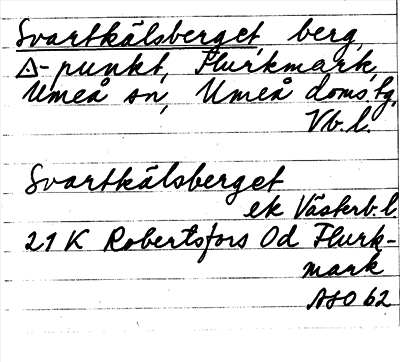 Svartkälsberget berg,
△-punkt, Flurkmark,
Umeå sn, Umeå doms.fg,
Vb. l.
Svartkälsberget
ek Västerb. l
21 K Robertsfors 0d Flurk-
mark
ASO 62